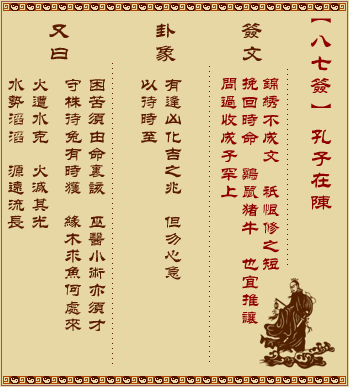 【八七簽】 孔子在陳
簽文
錦綉不成文 祇恨修之短
挽回時命 鷄鼠猪牛 也宜推讓
問過收成子罕上
卦象
有逢凶化吉之兆 但勿心急
以待時至
又曰
困苦須由命裏該 巫醫小術亦須才
守株待兔有時獲 緣木求魚何處來
火遭水克 火滅其光
水勢滔滔 源遠流長